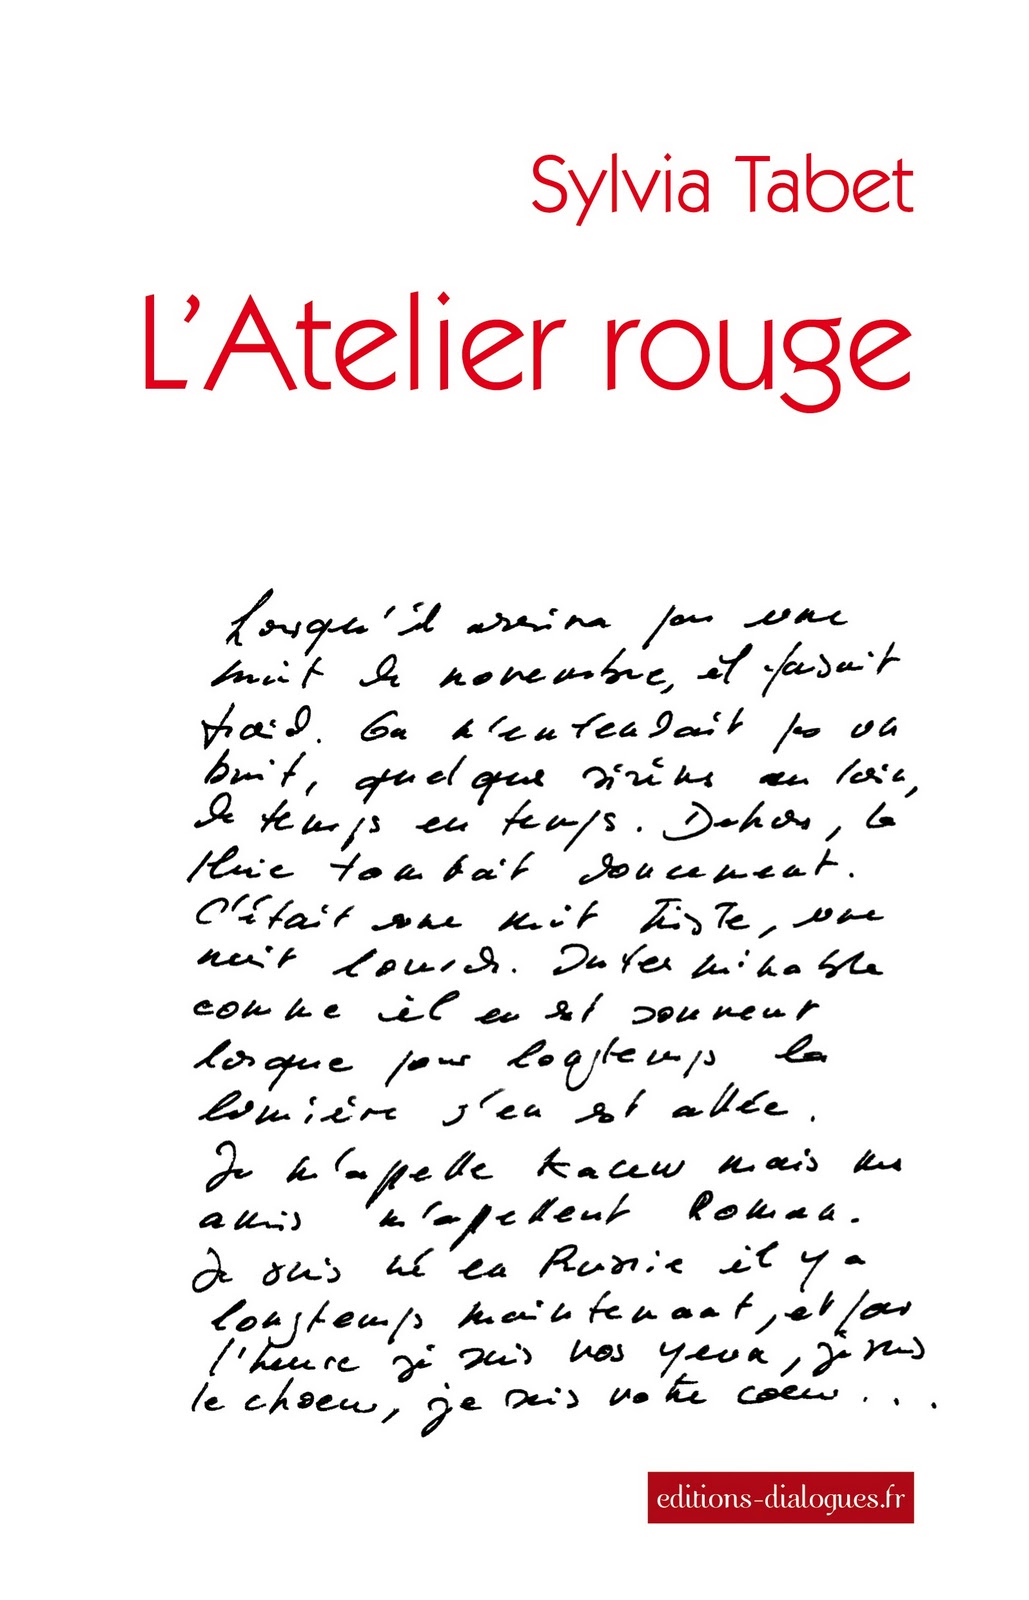 Sylvia Tabet
L'Atelier rouge
Lorsqu'il arriva par une
nuit de novembre, il faisait
froid. On n'entendait pas un
bruit, quelques sirènes au loin,
de temps en temps. Dehors, la
pluie tombait doucement.
C'était une nuit triste, une
nuit lourde. Interminable
comme il en est souvent
lorsque pour longtemps la
lumière s'en est allée.
Je m'appelle mais mes
amis m'appellent Roman.
Je suis né en Russie il y a
longtemps maintenant, et pour
l'heure je suis vos yeux, je suis
le choeur, je suis votre coeur...
editions-dialogues.fr